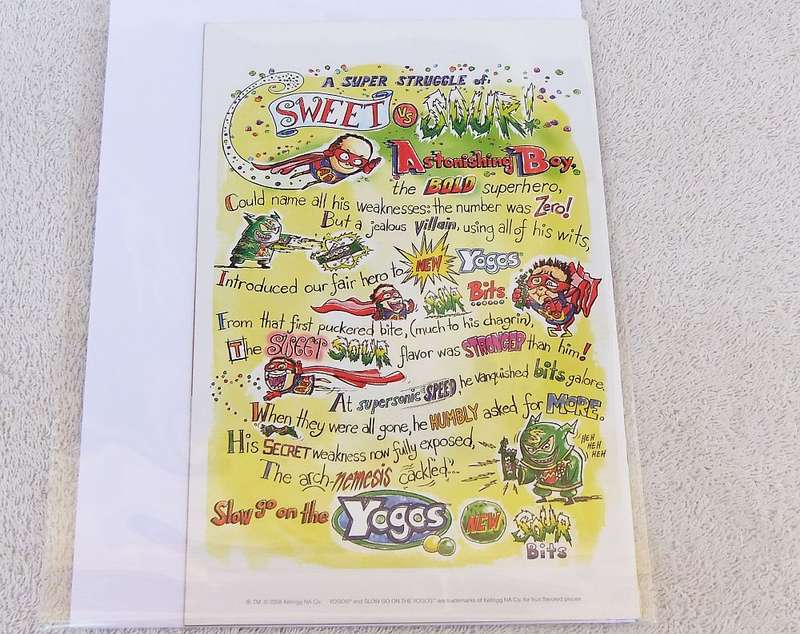 A SUPER STRUGGLE of:
SWEET VS SOUR!
Astonishing Boy,
the BOLD superhero,
Could name all his weaknesses: the number was Zero!
But a jealous villain, using all of his wits,
Introduced our fair hero to NEW Yogos
SOUR Bits
From that first puckered bite, (much to his chagrin),
The SWEET SOUR flavor was STRONGER than him!
At supersonic SPEED, he vanquished bits galore,
When they were all gone, he HUMBLY asked for MORE.
His SECRET weakness now fully exposed,
The arch-nemesis cackled...
HEH
HEH
HEH
HEH
Slow go on the Yogos NEW SOUR Bits
®, TM, © 2006 Kellogg NA Co. YOGOS® and SLOW GO ON THE YOGOS™ are trademarks of Kellogg NA Co. for fruit flavored pieces